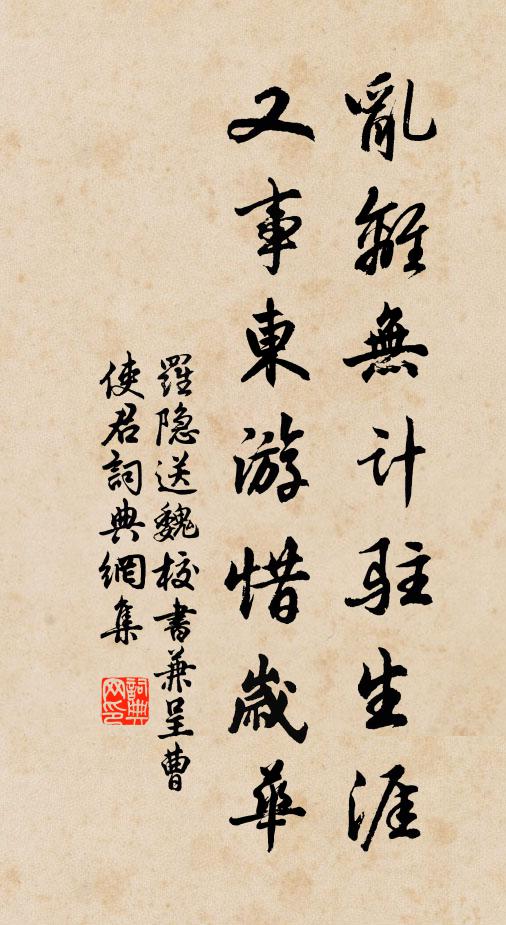 亂離無計駐生涯
又事東游惜歲華
羅隐送魏校書兼呈曹
使君詞典網集
詞典
网印